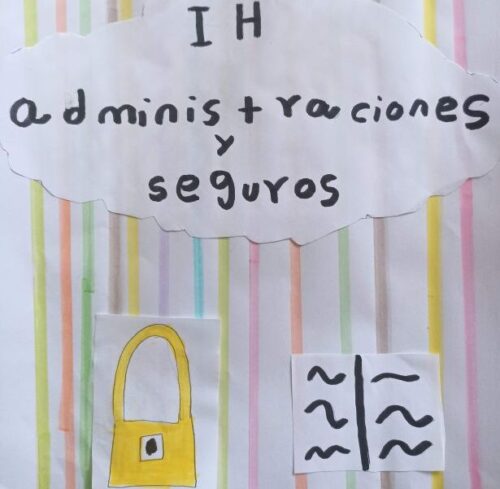 I H
administraciones
y
seguros